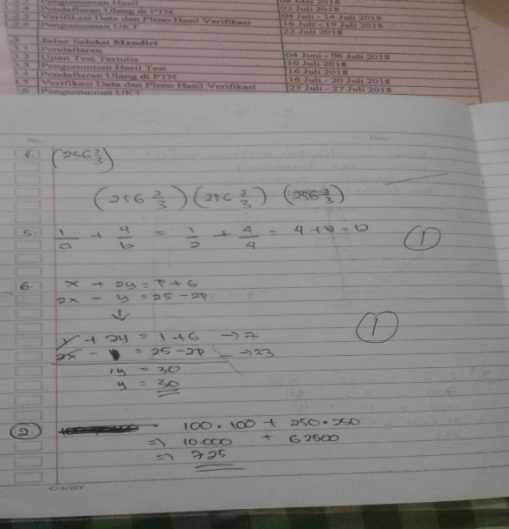 Pengumuman Hasil
03 Juli 2018
Pendaftaran Ulang di PTN
04 Juli - 14 Juli 2018
Verifikasi Data dan Pleno Hasil Verifikasi
16 Juli - 19 Juli 2018
Pengumuman UKT
23 Juli 2018
Jalur Seleksi Mandiri
Pendaftaran
04 Juni - 06 Juli 2018
Ujian Test Tertulis
10 Juli 2018
Pengumuman Hasil Test
16 Juli 2018
Pendaftaran Ulang di PTN
16 Juli - 20 Juli 2018
Verifikasi Data dan Pleno Hasil Verifikasi
23 Juli - 27 Juli 2018
Pengumuman UKT
(256 2/3)
(256 2/3) (256 2/3) (256 2/3)
5. 1/a + 4/b = 1/2 + 4/4 = 4+0=0 (1)
6. x + 2y = 1+6
2x - y = 25-28
↓
x + 2y = 1+6 → 7
2x - = 25-28 → 23 (1)
1y = 30
y = 30
(2.) 100.100 + 250.250
⇒ 10.000 + 62500
⇒ 725